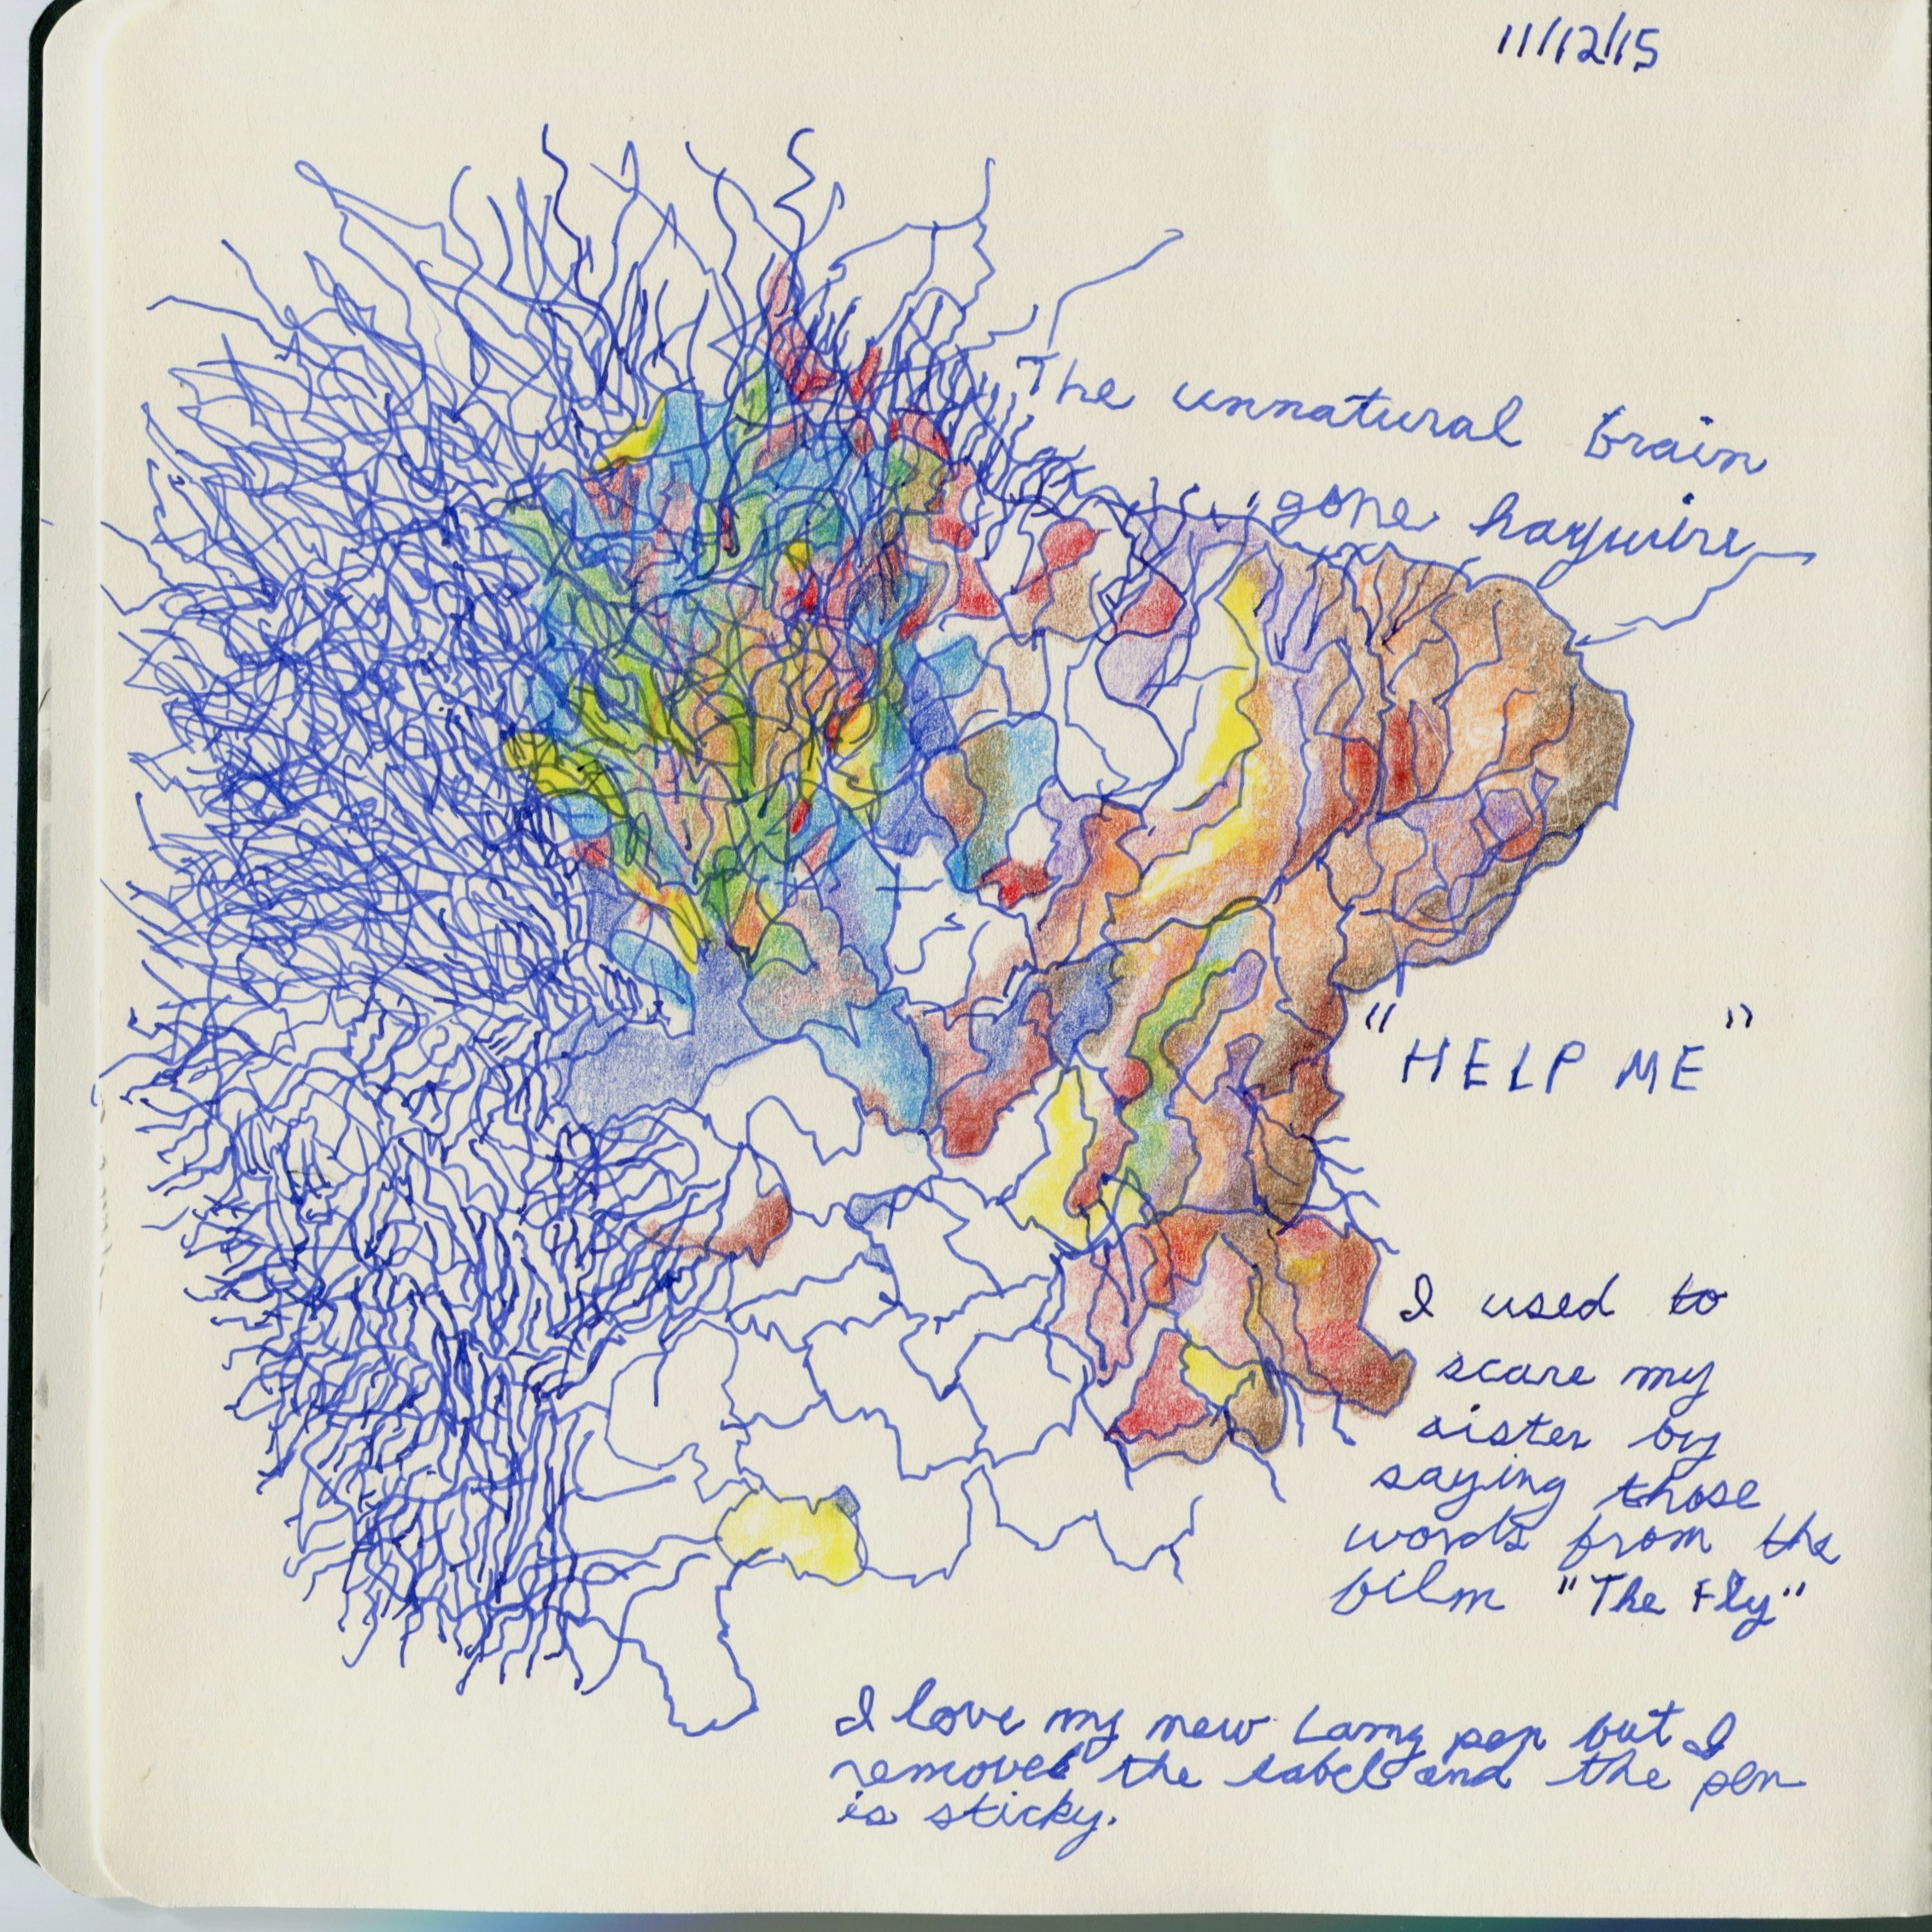 11/12/15
The unnatural brain
gone haywire
"HELP ME"
I used to
scare my
sister by
saying those
words from the
film "The Fly"
I love my new Lamy pen but I
removed the label and the pen
is sticky.